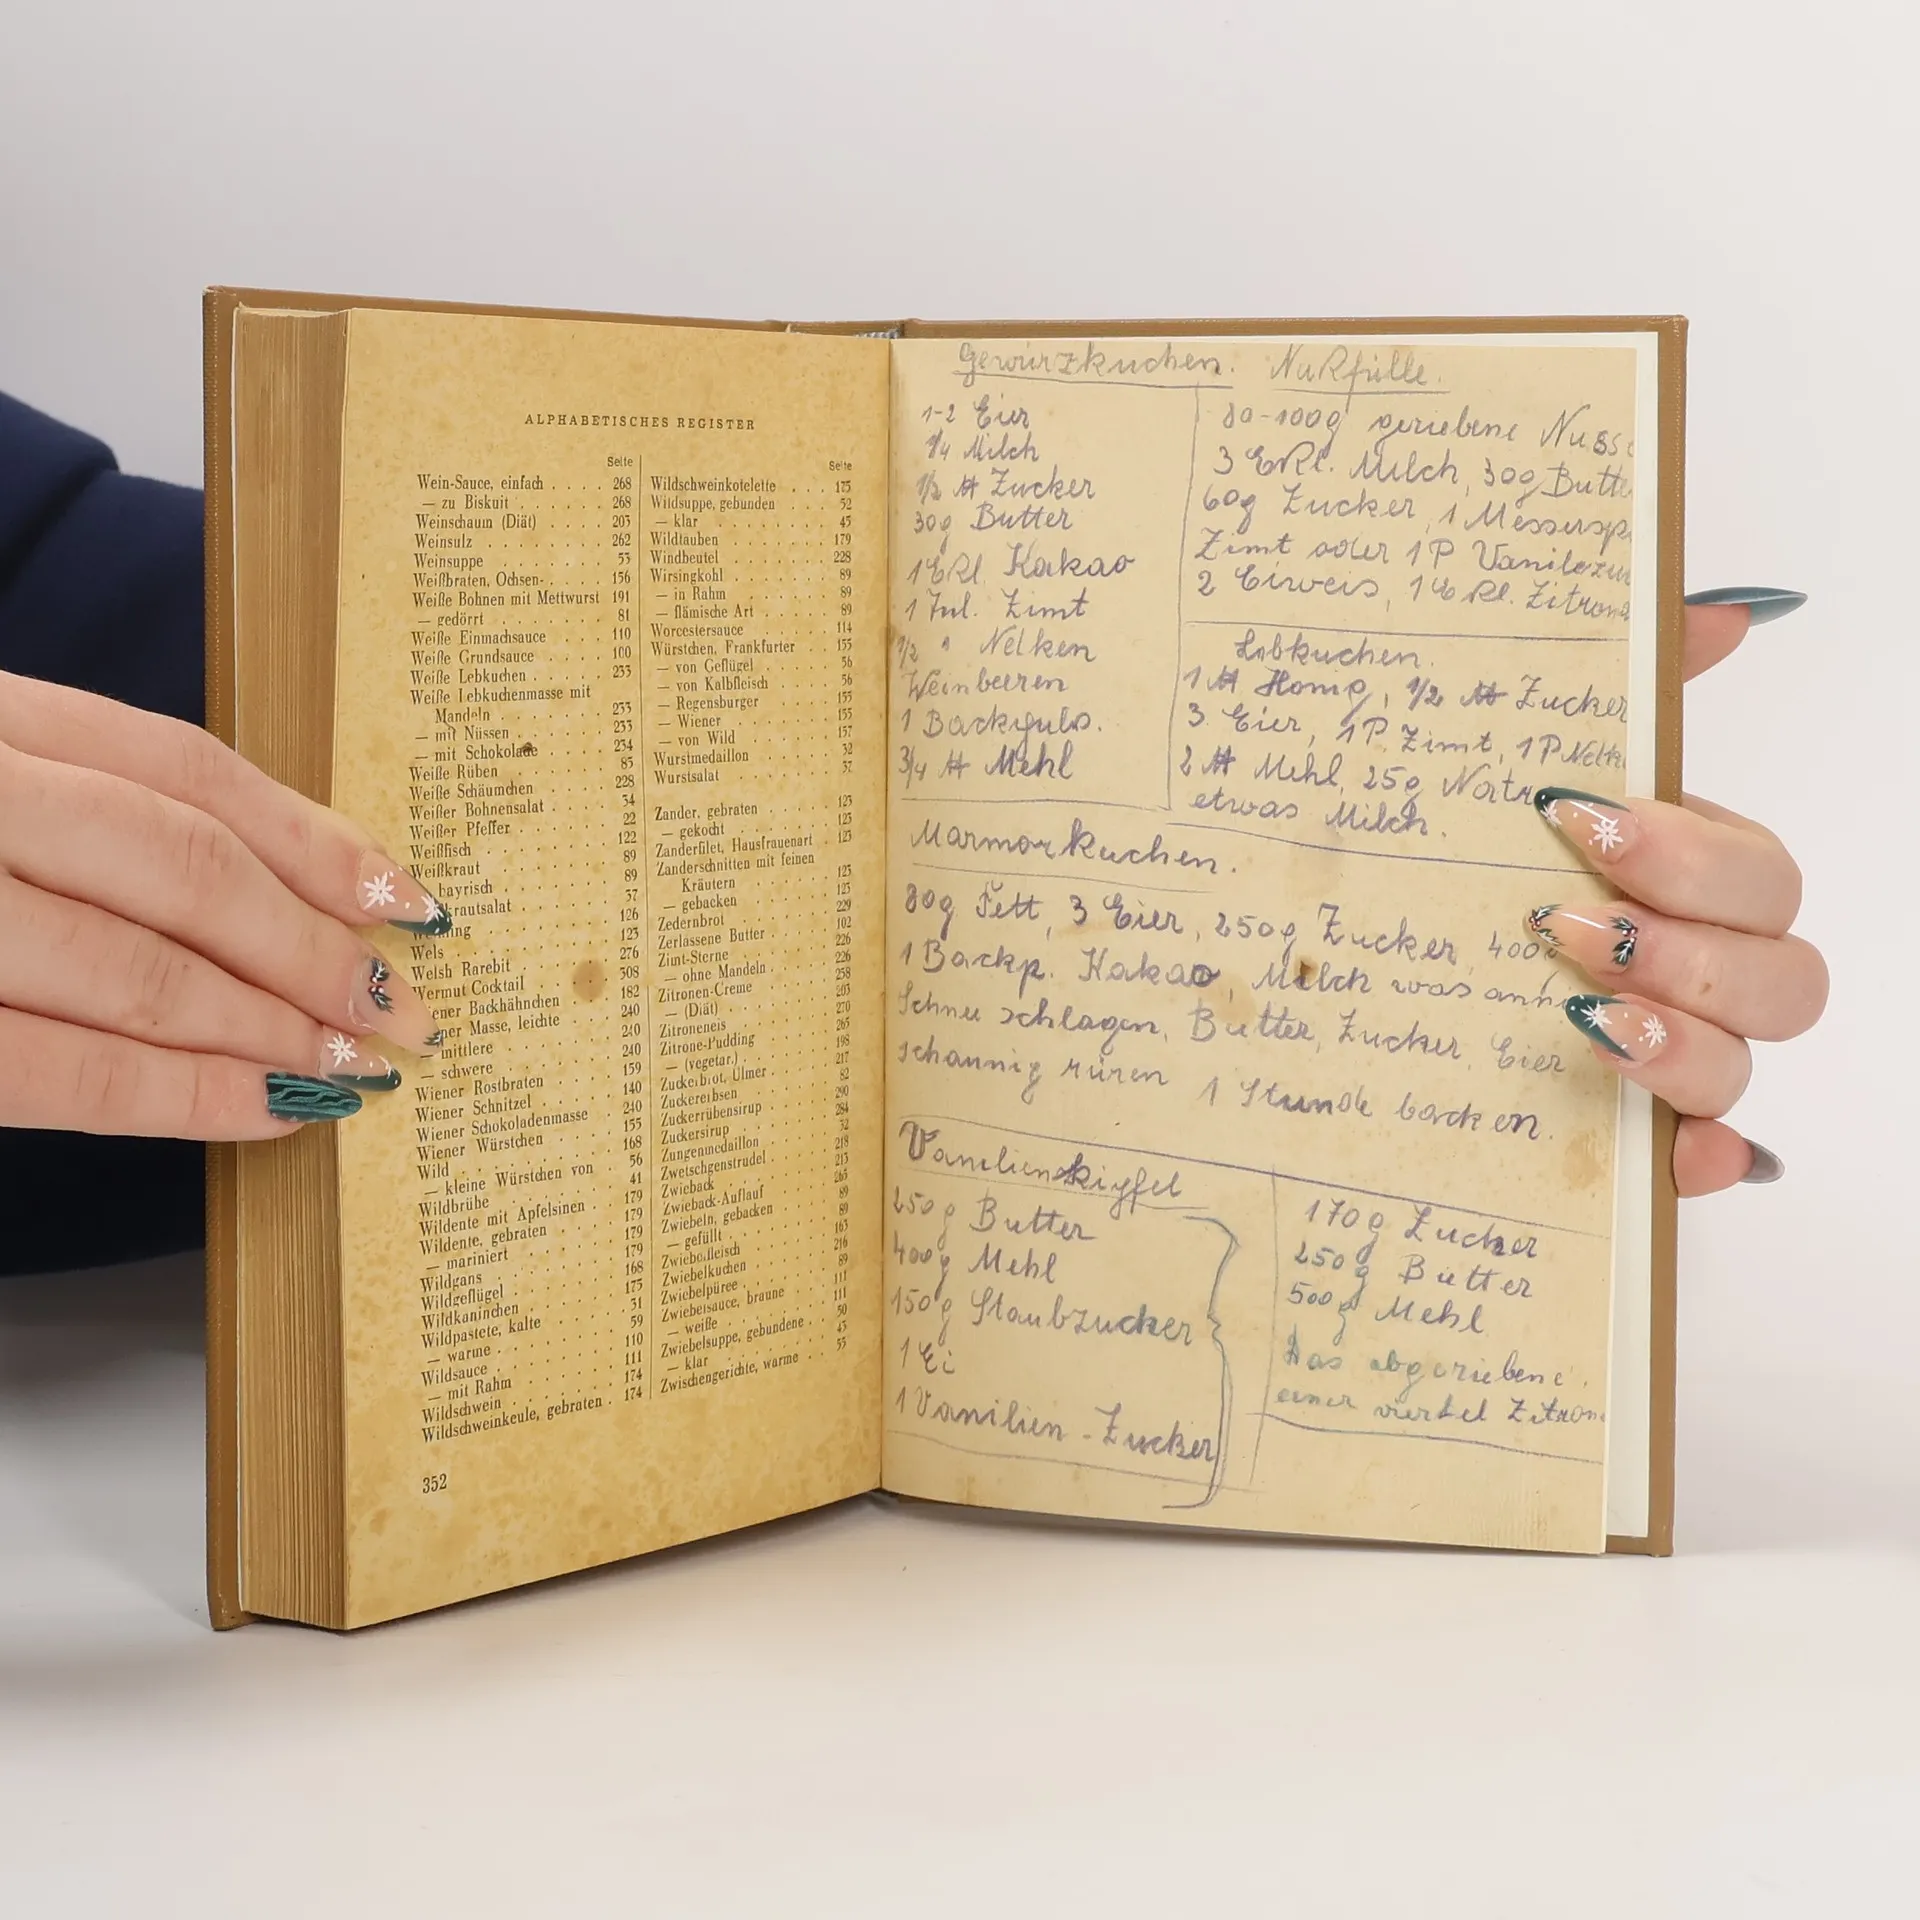 ALPHABETISCHES REGISTER
Seite
Wein-Sauce, einfach . . . . 268
— zu Biskuit . . . . . . 268
Weinschaum (Diät) . . . . 203
Weinsulz . . . . . . . . 262
Weinsuppe . . . . . . . 53
Weißbraten, Ochsen- . . . . 156
Weiße Bohnen mit Mettwurst 191
— gedörrt . . . . . . . 81
Weiße Einmachsauce . . . 110
Weiße Grundsauce . . . . 100
Weiße Lebkuchen . . . . . 233
Weiße Lebkuchenmasse mit
Mandeln . . . . . . . 233
— mit Nüssen . . . . . . 233
— mit Schokolade . . . . 234
Weiße Rüben . . . . . . 85
Weiße Schäumchen . . . . 228
Weißer Bohnensalat . . . . 34
Weißer Pfeffer . . . . . . 22
Weißfisch . . . . . . . 122
Weißkraut . . . . . . . 89
bayrisch . . . . . . 89
krautsalat . . . . . . 37
126
Wels . . . . . . . . 123
Welsh Rarebit . . . . . . 276
Wermut Cocktail . . . . . 308
ener Backhähnchen . . . . 182
ner Masse, leichte . . . . 240
— mittlere . . . . . . . 240
— schwere . . . . . . . 240
Wiener Rostbraten . . . . 159
Wiener Schnitzel . . . . . 140
Wiener Schokoladenmasse . . 240
Wiener Würstchen . . . . 155
Wild . . . . . . . . 168
— kleine Würstchen von . . 56
Wildbrühe . . . . . . . 41
Wildente mit Apfelsinen . . . 179
Wildente, gebraten . . . . 179
— mariniert . . . . . . 179
Wildgans . . . . . . . 179
Wildgeflügel . . . . . . 168
Wildkaninchen . . . . . 175
Wildpastete, kalte . . . . 31
— warme . . . . . . . 59
Wildsauce . . . . . . . 110
— mit Rahm . . . . . . 111
Wildschwein . . . . . . 174
Wildschweinkeule, gebraten . 174
352
Seite
Wildschweinkotelette . . . 175
Wildsuppe, gebunden . . . 52
— klar . . . . . . . 45
Wildtauben . . . . . . 179
Windbeutel . . . . . . 228
Wirsingkohl . . . . . . 89
— in Rahm . . . . . . 89
— flämische Art . . . . . 89
Worcestersauce . . . . . 114
Würstchen, Frankfurter . . 155
— von Geflügel . . . . . 56
— von Kalbfleisch . . . . 56
— Regensburger . . . . . 155
— Wiener . . . . . . . 155
— von Wild . . . . . . 157
Wurstmedaillon . . . . . 32
Wurstsalat . . . . . . 37
Zander, gebraten . . . . 123
— gekocht . . . . . . 123
Zanderfilet, Hausfrauenart . 123
Zanderschnitten mit feinen
Kräutern . . . . . . 123
— gebacken . . . . . . 123
Zedernbrot . . . . . . 229
Zerlassene Butter . . . . 102
Zimt-Sterne . . . . . . 226
— ohne Mandeln . . . . . 226
Zitronen-Creme . . . . . 258
— (Diät) . . . . . . . 203
Zitroneneis . . . . . . 270
Zitrone-Pudding . . . . . 265
— (vegetar.) . . . . . . 198
Zuckerbrot, Ulmer . . . . 217
Zuckererbsen . . . . . . 82
Zuckerrübensirup . . . . 290
Zuckersirup . . . . . . 284
Zungenmedaillon . . . . . 32
Zwetschgenstrudel . . . . 218
Zwieback . . . . . . . 213
Zwieback-Auflauf . . . . 265
Zwiebeln, gebacken . . . . 89
— gefüllt . . . . . . . 89
Zwiebelfleisch . . . . . 163
Zwiebelkuchen . . . . . 216
Zwiebelpüree . . . . . . 89
Zwiebelsauce, braune . . . 111
— weiße . . . . . . . 111
Zwiebelsuppe, gebundene . . 50
— klar . . . . . . . 43
Zwischengerichte, warme . . 55
Gewürzkuchen.
1-2 Eier
1/4 Milch
1/2 ℔ Zucker
30g Butter
1 Eßl. Kakao
1 Tul. Zimt
1/2 " Nelken
Weinbeeren
1 Backpulv.
3/4 ℔ Mehl
Nußfülle.
80-100g geriebene Nuss
3 Eßl. Milch, 30g Butte
60g Zucker, 1 Messersp
Zimt oder 1 P Vanilezu
2 Eiweis, 1 Eßl. Zitrona
Lebkuchen.
1 ℔ Honig, 1/2 ℔ Zucker
3 Eier, 1 P. Zimt, 1 P Nelk
2 ℔ Mehl, 25g Natr
etwas Milch.
Marmorkuchen.
80g Fett, 3 Eier, 250g Zucker, 400
1 Backp. Kakao, Milch was anni
Schnee schlagen, Butter, Zucker, Eier
schaumig rüren 1 Stunde backen.
Vanilienkipfel
250g Butter
400g Mehl
150g Staubzucker
1 Ei
1 Vanilien-Zucker
170g Zucker
250g Butter
500g Mehl
Das abgeriebene
einer viertel Zitron